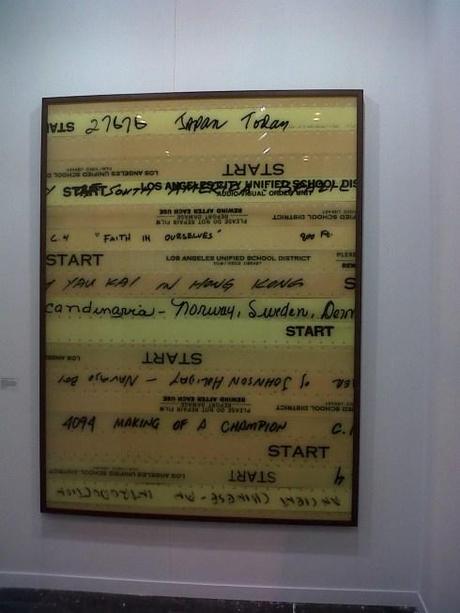 START 27676 Japan Today
LOS ANGELES UNIFIED SCHOOL D
START
START LOS ANGELES CITY UNIFIED SCHOOL DIS
AUDIO-VISUAL ORDER UNIT
REWIND AFTER EACH USE
REPORT DAMAGE
PLEASE DO NOT REPAIR FILM
SCHOOL DISTRICT
C.4 "FAITH IN OURSELVES" 900 Ft.
START LOS ANGELES UNIFIED SCHOOL DISTRICT PLEASE
Y YAU KAI IN HONG KONG S
candinavia - Norway, Sweden, Den
START
START LOS
OF JOHNSON HOLIDAY - NAVAJO BOY
REWIND AFTER EACH USE
REPORT DAMAGE
PLEASE DO NOT REPAIR FILM
ED SCHOOL DISTRICT
4094 MAKING OF A CHAMPION C.
START
LOS ANGELES UNIFIED SCHOOL DISTRICT START 4
ANCIENT CHINESE - AN INTRODUCTION